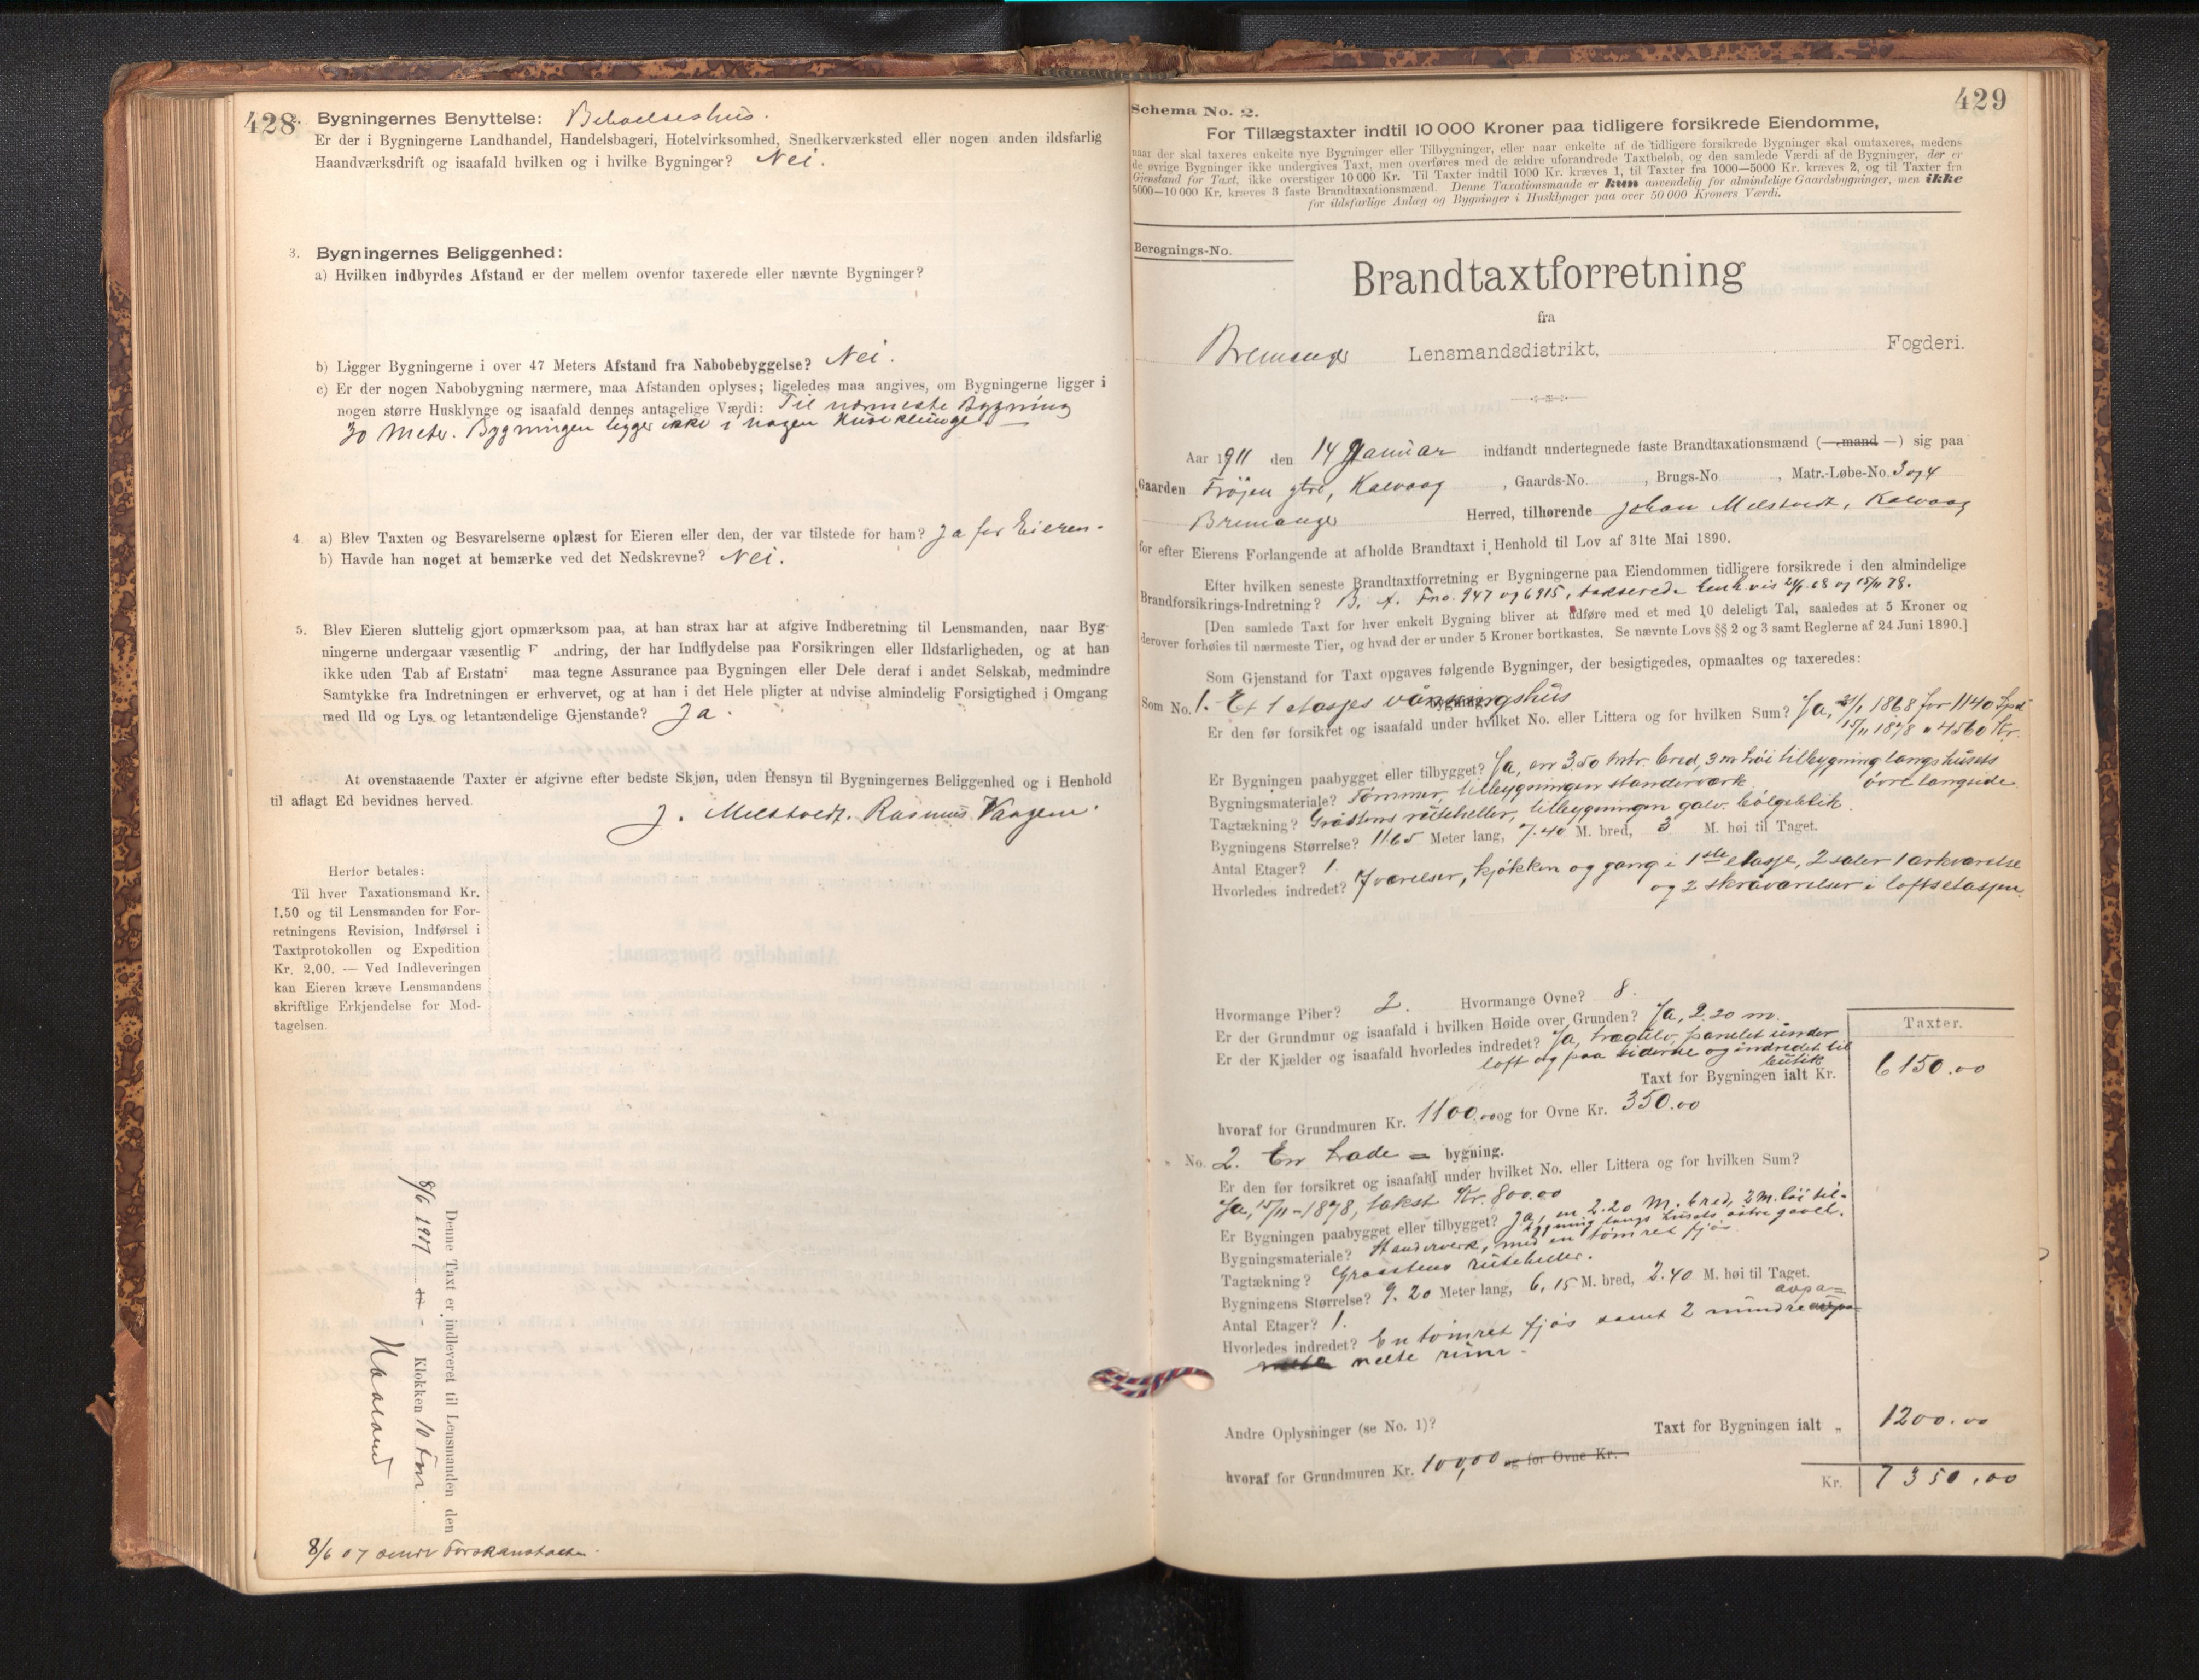 428
2. Bygningernes Benyttelse: Beboelseshus.
Er der i Bygningerne Landhandel, Handelsbageri, Hotelvirksomhed, Snedkerværksted eller nogen anden ildsfarlig
Haandværksdrift og isaafald hvilken og i hvilke Bygninger? Nei.
3. Bygningernes Beliggenhed:
a) Hvilken indbyrdes Afstand er der mellem ovenfor taxerede eller nævnte Bygninger?
b) Ligger Bygningerne i over 47 Meters Afstand fra Nabobebyggelse? Nei.
c) Er der nogen Nabobygning nærmere, maa Afstanden oplyses; ligeledes maa angives, om Bygningerne ligger i
nogen større Husklynge og isaafald dennes antagelige Værdi: Til nærmeste Bygning
30 Meter. Bygningen ligger ikke i nogen Huseklunge
4. a) Blev Taxten og Besvarelserne oplæst for Eieren eller den, der var tilstede for ham? Ja for Eieren.
b) Havde han noget at bemærke ved det Nedskrevne? Nei.
5. Blev Eieren sluttelig gjort opmærksom paa, at han strax har at afgive Indberetning til Lensmanden, naar Byg-
ningerne undergaar væsentlig F andring, der har Indflydelse paa Forsikringen eller Ildsfarligheden, og at han
ikke uden Tab af Erstatni maa tegne Assurance paa Bygningen eller Dele deraf i andet Selskab, medmindre
Samtykke fra Indretningen er erhvervet, og at han i det Hele pligter at udvise almindelig Forsigtighed i Omgang
med Ild og Lys og letantændelige Gjenstande? Ja.
At ovenstaaende Taxter er afgivne efter bedste Skjøn, uden Hensyn til Bygningernes Beliggenhed og i Henhold
til aflagt Ed bevidnes herved.
J. Melstvedt. Rasmus Vaagene.
Herfor betales:
Til hver Taxationsmand Kr.
1.50 og til Lensmanden for For-
retningens Revision, Indførsel i
Taxtprotokollen og Expedition
Kr. 2.00. — Ved Indleveringen
kan Eieren kræve Lensmandens
skriftlige Erkjendelse for Mod-
tagelsen.
Denne Taxt er indleveret til Lensmanden den
8/6 1907 Klokken 10 fm.
8/6 07 sendt
429
Schema No. 2.
For Tillægstaxter indtil 10 000 Kroner paa tidligere forsikrede Eiendomme,
naar der skal taxeres enkelte nye Bygninger eller Tilbygninger, eller naar enkelte af de tidligere forsikrede Bygninger skal omtaxeres, medens
de øvrige Bygninger ikke undergives Taxt, men overføres med de ældre uforandrede Taxtbeløb, og den samlede Værdi af de Bygninger, der er
Gjenstand for Taxt, ikke overstiger 10 000 Kr. Til Taxter indtil 1000 Kr. kræves 1, til Taxter fra 1000—5000 Kr. kræves 2, og til Taxter fra
5000—10 000 Kr. kræves 3 faste Brandtaxationsmænd. Denne Taxationsmaade er kun anvendelig for almindelige Gaardsbygninger, men ikke
for ildsfarlige Anlæg og Bygninger i Husklynger paa over 50 000 Kroners Værdi.
Beregnings-No.
Brandtaxtforretning
fra
Bremanger Lensmandsdistrikt, Fogderi.
Aar 1911 den 14 Januar indfandt undertegnede faste Brandtaxationsmænd (—mand —) sig paa
Gaarden Frøjen ytre, Kalvaag, Gaards-No. , Brugs-No , Matr.-Løbe-No. 3 og 4
Bremanger Herred, tilhørende Johan Melstvedt, Kalvaag
for efter Eierens Forlangende at afholde Brandtaxt i Henhold til Lov af 31te Mai 1890.
Efter hvilken seneste Brandtaxtforretning er Bygningerne paa Eiendommen tidligere forsikrede i den almindelige
Brandforsikrings-Indretning? B. A. Fno. 947 og 6915, takserede henh.vis 24/1 68 og 15/11 78.
[Den samlede Taxt for hver enkelt Bygning bliver at udføre med et med 10 deleligt Tal, saaledes at 5 Kroner og
derover forhøies til nærmeste Tier, og hvad der er under 5 Kroner bortkastes. Se nævnte Lovs §§ 2 og 3 samt Reglerne af 24 Juni 1890.]
Som Gjenstand for Taxt opgaves følgende Bygninger, der besigtigedes, opmaaltes og taxeredes:
Som No. 1. Et 1 etasjes våningshus
Er den før forsikret og isaafald under hvilket No. eller Littera og for hvilken Sum? Ja, 24/1 1868 for 1140 Spd
15/11 1878 " 4560 Kr.
Er Bygningen paabygget eller tilbygget? Ja, en 3.50 mtr. bred, 3 m høi tilbygning langs husets
øvre langside
Bygningsmateriale? Tømmer, tilbygningen standerværk
Tagtækning? Gråstens rutcheller, tilbygningen galv. bølgeblik.
Bygningens Størrelse? 11.65 Meter lang, 7.40 M. bred, 3 M. høi til Taget.
Antal Etager? 1
Hvorledes indredet? 7 værelser, kjøkken og gang i 1ste etasje, 2 saler 1 arkværelse
og 2 skråværelser i loftsetasjen.
Hvormange Piber? 2. Hvormange Ovne? 8.
Er der Grundmur og isaafald i hvilken Høide over Grunden? Ja, 2.20 m.
Er der Kjælder og isaafald hvorledes indredet? Ja, trægulv, panelet under
loft og paa siderne og indredet til
butik
Taxter.
Taxt for Bygningen ialt Kr. 6150.00
hvoraf for Grundmuren Kr. 1100.00 og for Ovne Kr. 350.00
" No. 2. En lade = bygning.
Er den før forsikret og isaafald under hvilket No. eller Littera og for hvilken Sum?
Ja, 15/11-1878, takst Kr. 800.00
Er Bygningen paabygget eller tilbygget? Ja, en 2.20 M. bred, 2 M. høi til-
bygning langs husets østre gavel.
Bygningsmateriale? Standerverk, med en tømret fjøs
Tagtækning? Graastens rutcheller.
Bygningens Størrelse? 9.20 Meter lang, 6,15 M. bred, 2.40 M. høi til Taget.
Antal Etager? 1.
Hvorledes indredet? En tømret fjøs samt 2 mindre avpa-
nelte rum.
Andre Oplysninger (se No. 1)? Taxt for Bygningen ialt „ 1200.00
hvoraf for Grundmuren Kr. 100,00 og for Ovne Kr.
Kr. 7350.00